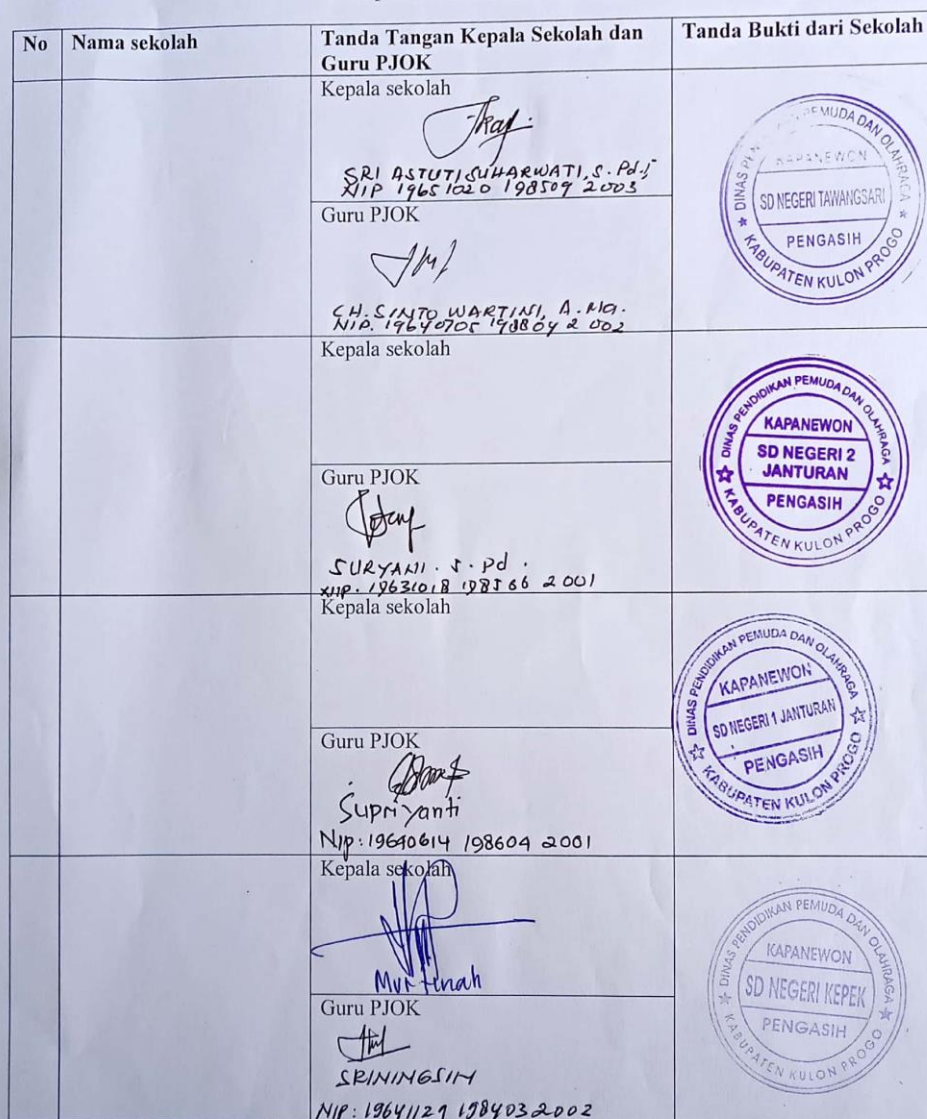 No Nama sekolah Tanda Tangan Kepala Sekolah dan Guru PJOK Tanda Bukti dari Sekolah
Kepala sekolah
SRI ASTUTI SUHARWATI, S.Pd.
NIP 19651020 198509 2003
Guru PJOK
CH. SINTO WARTINI, A.Ma.
NIP. 19640705 198804 2 002
DINAS PEMUDA DAN OLAHRAGA
KAPANEWON
SD NEGERI TAWANGSARI
PENGASIH
KABUPATEN KULON PROGO
Kepala sekolah
Guru PJOK
SURYANI. S.Pd.
NIP. 19631018 198566 2001
DINAS PENDIDIKAN PEMUDA DAN OLAHRAGA
KAPANEWON
SD NEGERI 2
JANTURAN
PENGASIH
KABUPATEN KULON PROGO
Kepala sekolah
Guru PJOK
Supriyanti
Nip: 19640614 198604 2001
DINAS PENDIDIKAN PEMUDA DAN OLAHRAGA
KAPANEWON
SD NEGERI 1 JANTURAN
PENGASIH
KABUPATEN KULON PROGO
Kepala sekolah
Murtinah
Guru PJOK
SRININGSIH
NIP: 19641121 198403 2002
DINAS PENDIDIKAN PEMUDA DAN OLAHRAGA
KAPANEWON
SD NEGERI KEPEK
PENGASIH
KABUPATEN KULON PROGO